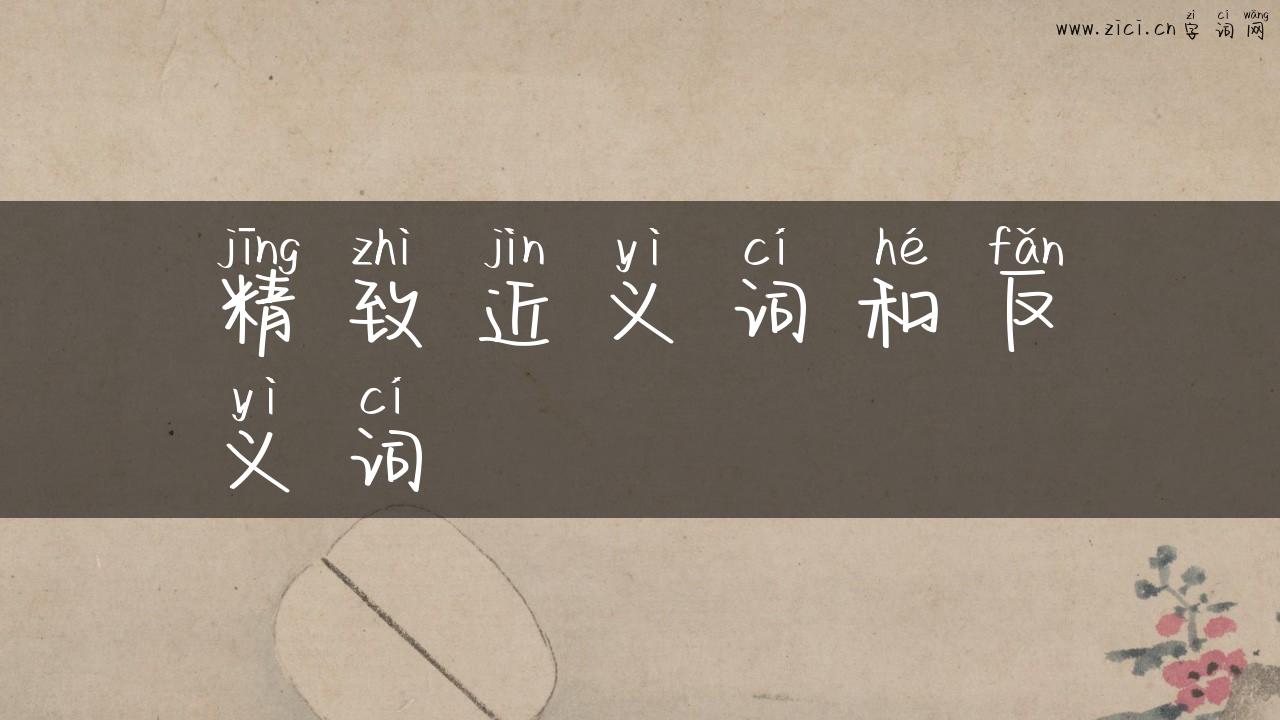 zì cí wǎng
www.zici.cn 字词网
jīng zhì jìn yì cí hé fǎn
精致近义词和反
yì cí
义词